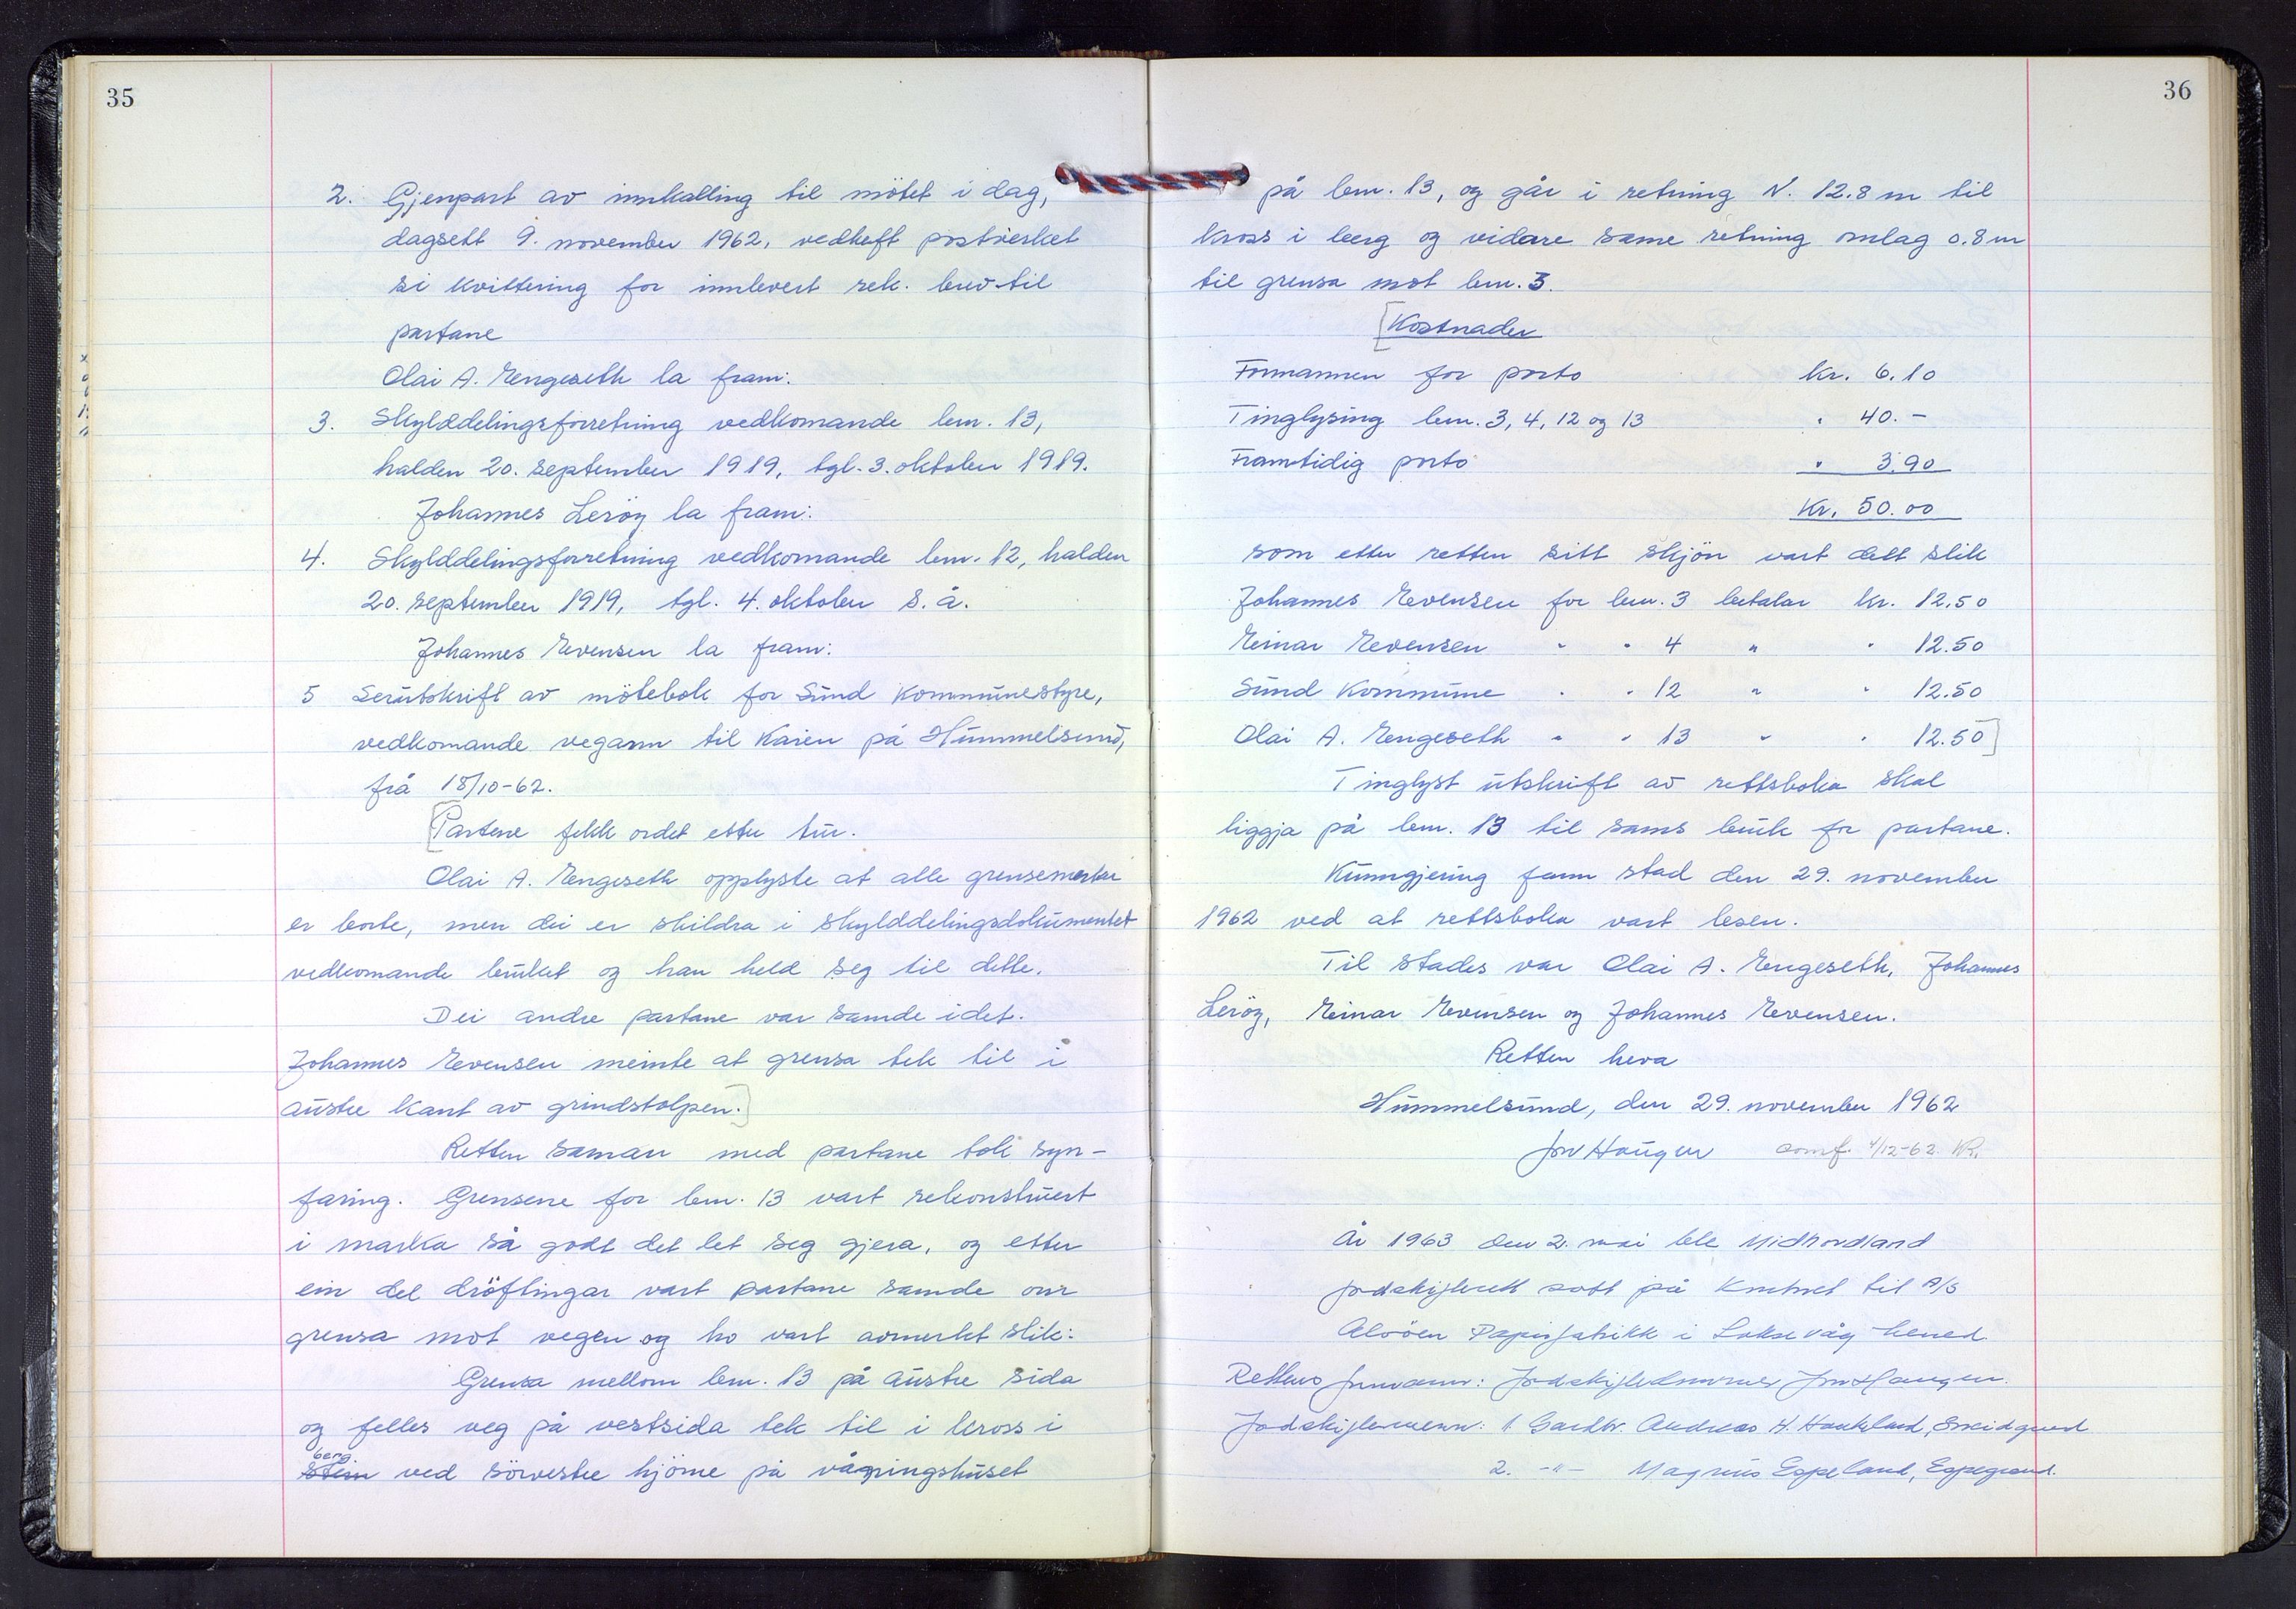 35
2. Gjenpart av innkalling til mötet i dag,
dagsett 9. november 1962, vedheft postverket
si kvittering for innlevert rek. brev til
partane
Olai A. Engeseth la fram:
3. Skylddelingsforretning vedkomande bnr. 13,
halden 20. september 1919, tgl. 3. oktober 1919.
Johannes Leröy la fram:
4. Skylddelingsforretning vedkomande bnr. 12, halden
20. september 1919, tgl. 4. oktober s. å.
Johannes Evensen la fram:
5 Serutskrift av mötebok for Sund kommunestyre,
vedkomande vegarm til kaien på Hummelsund,
frå 18/10-62.
[Partene fekk ordet etter tur.
Olai A. Engeseth opplyste at alle grensemerker
er borte, men dei er skildra i skylddelingsdokumentet
vedkomande bruket og han held seg til dette.
Dei andre partane var samde i det.
Johannes Evensen meinte at grensa tek til i
austre kant av grindstolpen.]
Retten saman med partane tok syn-
faring. Grensene for bnr. 13 vart rekonstruert
i marka så godt det let seg gjera, og etter
ein del dröftingar vart partane samde om
grensa mot vegen og ho vart avmerkt slik:
Grensa mellom bnr. 13 på austre sida
og felles veg på vestsida tek til i kross i
berg
stein ved sörvestre hjörne på våningshuset
36
på bnr. 13, og går i retning N. 12.8 m til
kross i berg og vidare same retning omlag 0.8 m
til grensa mot bnr. 3.
[Kostnader
Formannen for porto kr. 6.10
Tinglysing bnr. 3, 4, 12 og 13 " 40.-
Framtidig porto " 3.90
Kr. 50.00
som etter retten sitt skjön vart delt slik
Johannes Evensen for bnr. 3 betalar kr. 12.50
Einar Evensen " " 4 " " 12.50
Sund Kommune " " 12 " " 12.50
Olai A. Engeseth " " 13 " " 12.50]
Tinglyst utskrift av rettsboka skal
liggja på bnr. 13 til sams bruk for partane.
Kunngjering fann stad den 29. november
1962 ved at rettsboka vart lesen.
Til stades var Olai A. Engeseth, Johannes
Leröy, Einar Evensen og Johannes Evensen.
Retten heva
Hummelsund, den 29. november 1962
Jon Haugen 4/12-62
År 1963 den 2. mai ble Midhordland
jordskifterett satt på kontoret til A/S
Alvöen Papirfabrikk i Laksevåg herred.
Rettens formann: Jordskiftedommer Jon Haugen.
Jordskiftemenn: 1. Gardbr. Andreas H. Haukeland, Smidgard
2. -"- Magnus Espeland, Espegrend.